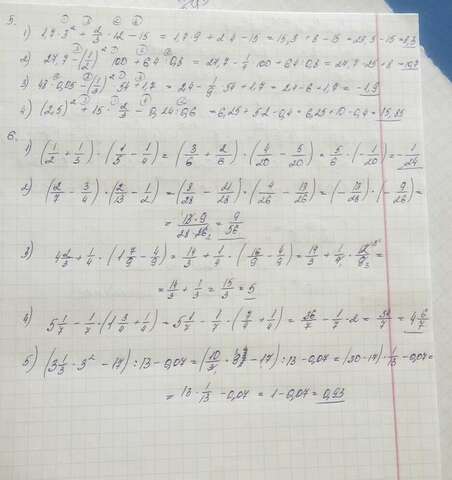 5.
1) 1,7·3² + 2/3·12 - 15 = 1,7·9 + 2·4 - 15 = 15,3 + 8 - 15 = 23,3 - 15 = 8,3
2) 24,7 - (1/2)² · 100 + 6,4 : 0,8 = 24,7 - 1/4 · 100 + 64 : 0,8 = 24,7 - 25 + 8 =
4) (2,5)² + 15 · 2/3 - 0,24 : 0,6 = 6,25 + 5·2 - 0,4 = 6,25 + 10 - 0,4 = 15,85
6.
1) (1/2 + 1/3) · (1/5 - 1/4) = (3/6 + 2/6) · (4/20 - 5/20) = 5/6 · (-1/20) = -1/24
2) (2/7 - 3/4) · (2/13 - 1/2) = (8/28 - 21/28) · (4/26 - 13/26) = (-13/28) · (-9/26) =
= 13·9/28·26₂ = 9/56
3) 4 2/3 + 1/4 · (1 7/9 - 4/9) = 14/3 + 1/4 · (16/9 - 4/9) = 14/3 + 1/4 · 12/9 =
= 14/3 + 1/3 = 15/3 = 5
4) 5 1/7 - 1/7 · (1 3/4 + 1/4) = 5 1/7 - 1/7 · (7/4 + 1/4) = 36/7 - 1/7 · 2 = 34/7 = 4 6/7
5) (3 1/3 · 3² - 17) : 13 - 0,07 = (10/3 · 9 - 17) : 13 - 0,07 = (30 - 17) · 1/13 - 0,07 =
= 13 · 1/13 - 0,07 = 1 - 0,07 = 0,93